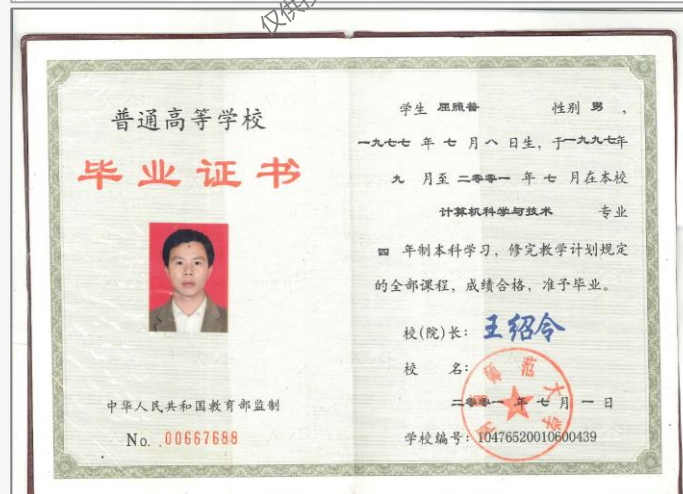 仅供
普通高等学校
毕业证书
中华人民共和国教育部监制
No. 00667688
学生 屈照普 性别 男 ，
一九七七 年 七 月 八 日生，于一九九七年
九 月至 二零零一 年 七 月在本校
计算机科学与技术 专业
四 年制本科学习，修完教学计划规定
的全部课程，成绩合格，准予毕业。
校(院)长： 王绍令
校 名：
师范大学
二零零一 年 七 月 一 日
学校编号：10476520010600439